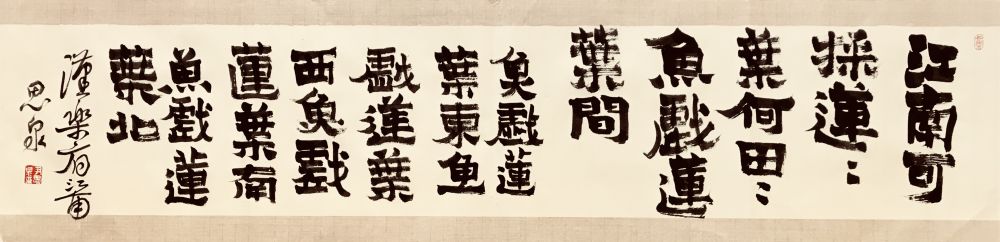 江南可
採蓮〻
葉何田〻
魚戲蓮
葉間
魚戲蓮
葉東魚
戲蓮葉
西魚戲
蓮葉南
魚戲蓮
葉北
漢樂府江南
思泉